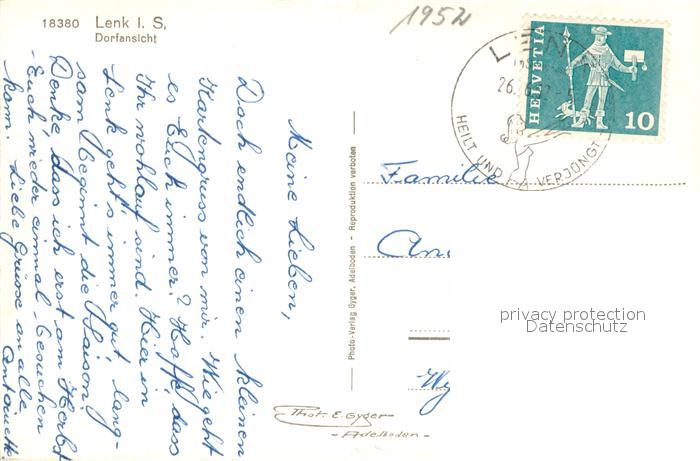 18380 Lenk I. S,
Dorfansicht
1952
Meine Lieben,
Doch endlich einen kleinen
Kartengruss von mir. Wie geht
es Euch immer? Hoffe, dass
Ihr wohlauf sind. Hier in
Lenk geht's immer gut, lang-
sam beginnt die Saison.
Denke, dass ich erst am Herbst
Euch wieder einmal besuchen
kom. Liebe Grüsse an alle
Antoinette
Photo-Verlag Gyger, Adelboden - Reproduktion verboten
Phot. E. Gyger
- Adelboden -
HELVETIA
10
LEN
26.
HEILT UND VERJÜNGT
Familie
Wy
privacy protection
Datenschutz